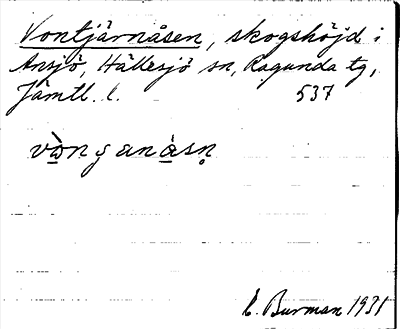 Vontjärnåsen, skogshöjd i
Ansjö, Hällesjö sn, Ragunda tg,
Jämtl. l. 537
E. Burman 1931